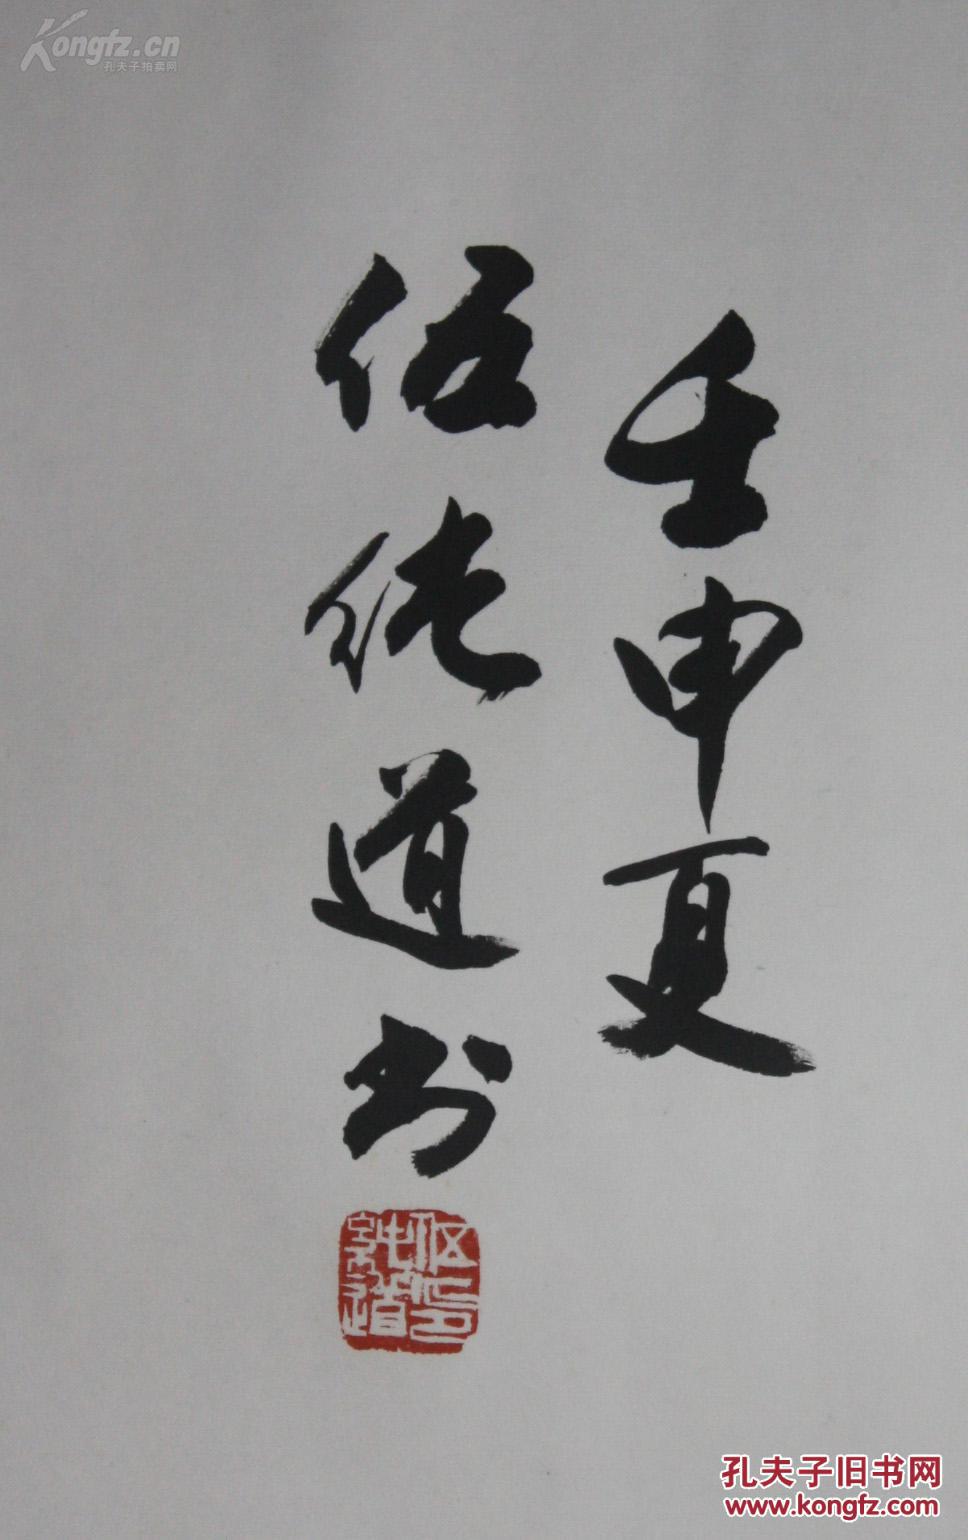 Kongfz.cn
孔夫子拍卖网
壬申夏
伍纯道书
伍纯道印
孔夫子旧书网
www.kongfz.com